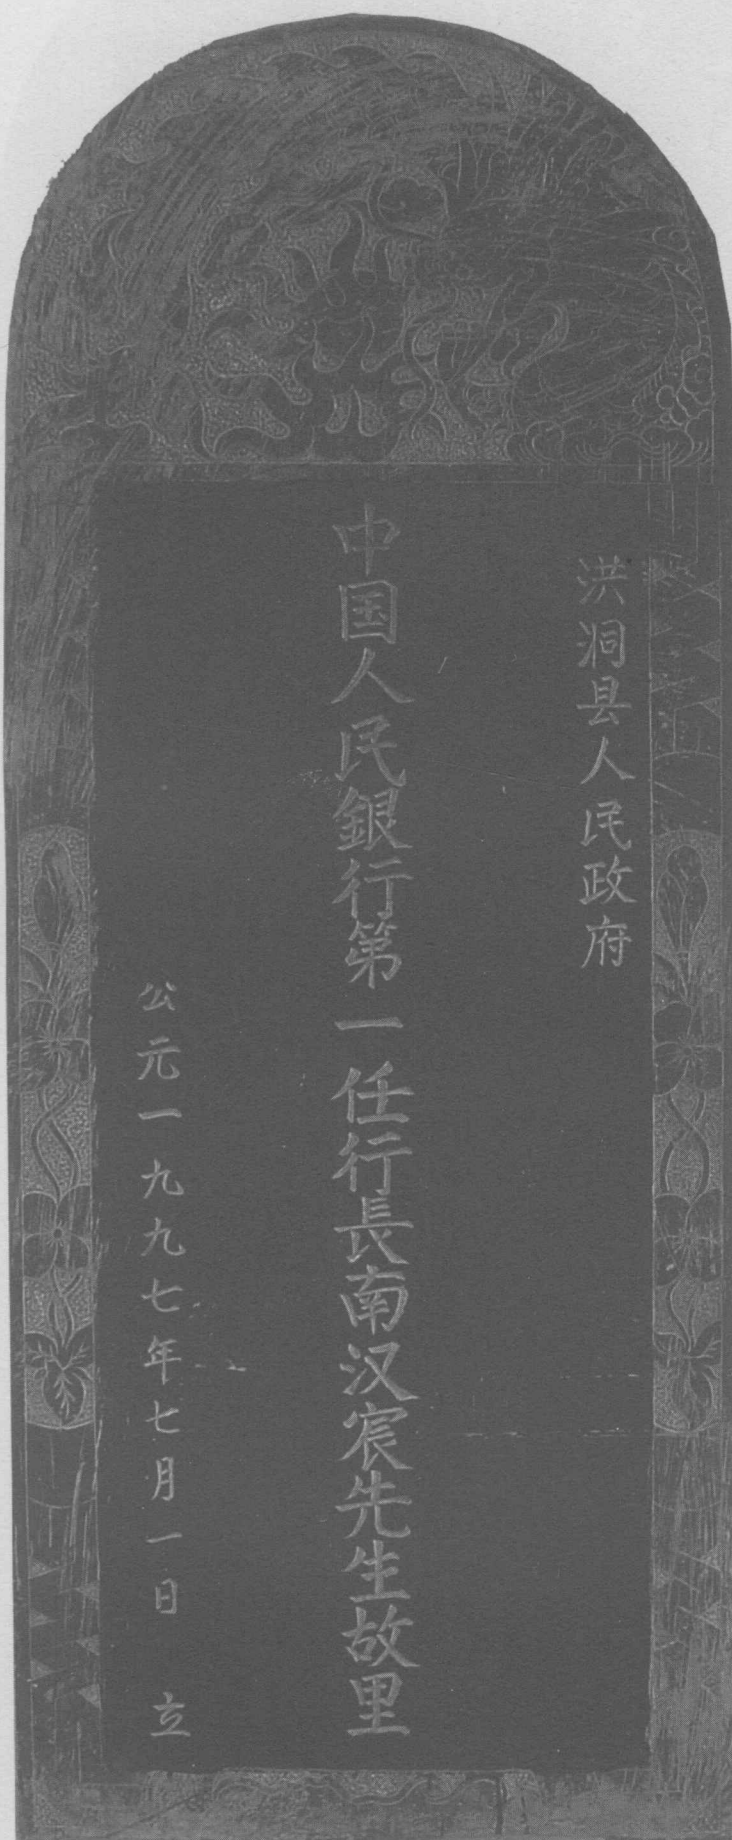 洪洞县人民政府
中国人民銀行第一任行長南汉宸先生故里
公元一九九七年七月一日 立